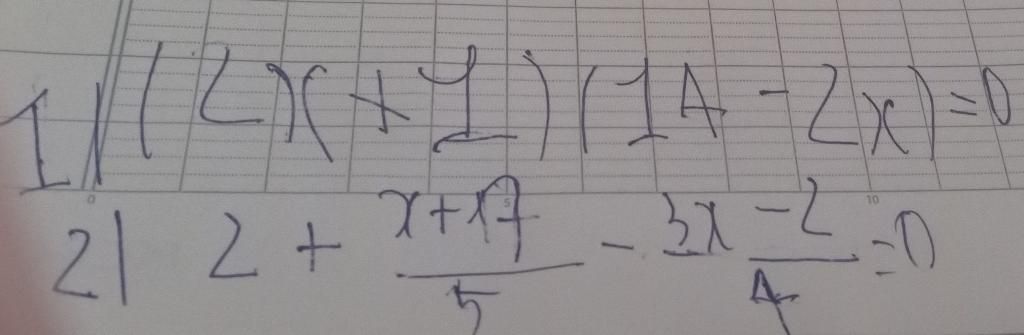 1| (2x+1)(14-2x)=0
2| 2 + \frac{x+17}{5} - \frac{3x-2}{4} = 0